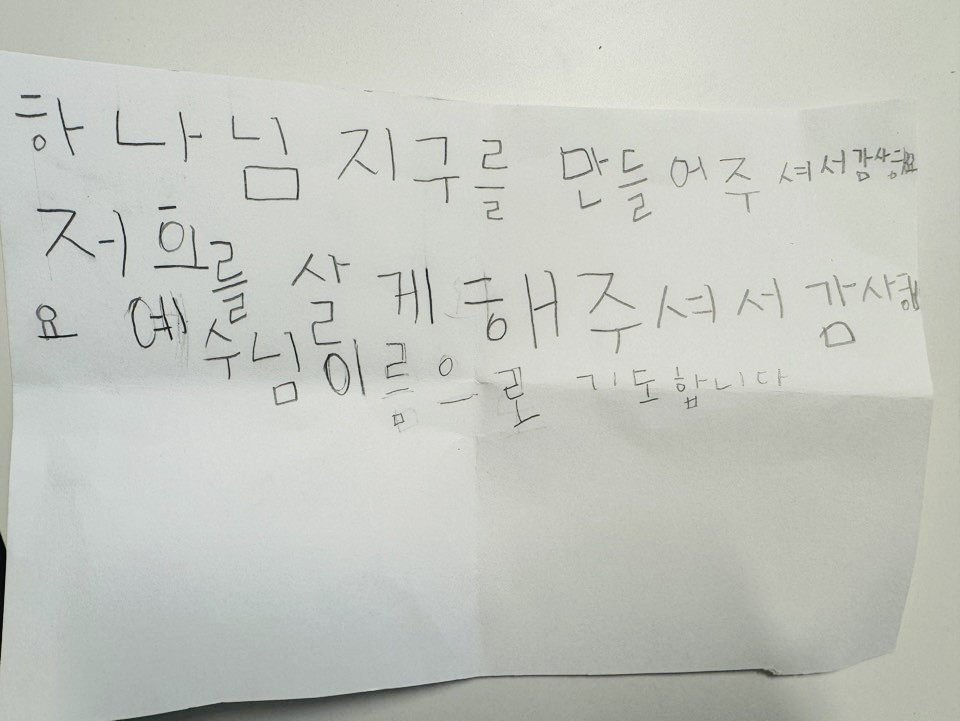 하나님 지구를 만들어주셔서감사해요
저희를 살게해주셔서감사해
요 예수님이름으로 기도합니다